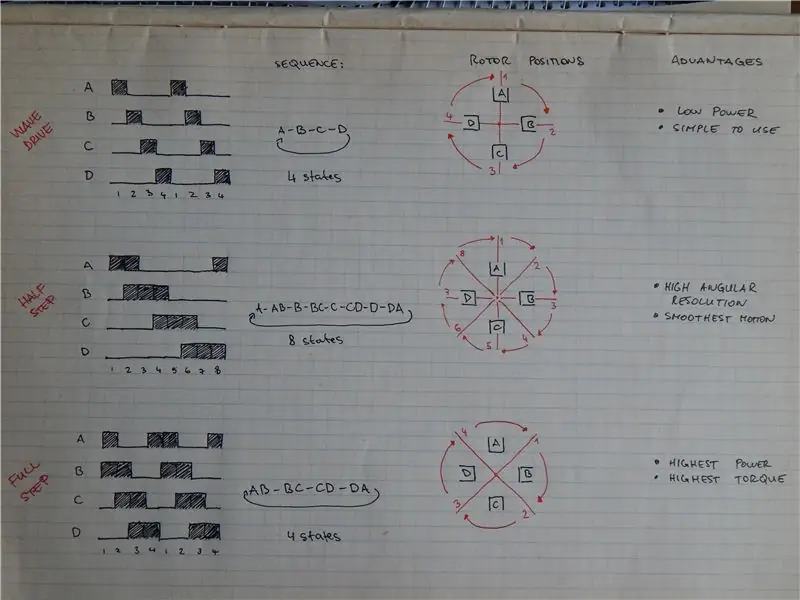 SEQUENCE:
ROTOR POSITIONS
ADVANTAGES
WAVE
DRIVE
A
B
C
D
1 2 3 4 1 2 3 4
A-B-C-D
4 states
1
A
4 D B 2
C
3
• LOW POWER
• SIMPLE TO USE
HALF
STEP
A
B
C
D
1 2 3 4 5 6 7 8
A-AB-B-BC-C-CD-D-DA
8 states
1
8 2
A
7 D B 3
C
6 4
5
• HIGH ANGULAR
RESOLUTION
• SMOOTHEST MOTION
FULL
STEP
A
B
C
D
1 2 3 4 1 2 3 4
AB-BC-CD-DA
4 states
4 1
A
D B
C
3 2
• HIGHEST POWER
• HIGHEST TORQUE